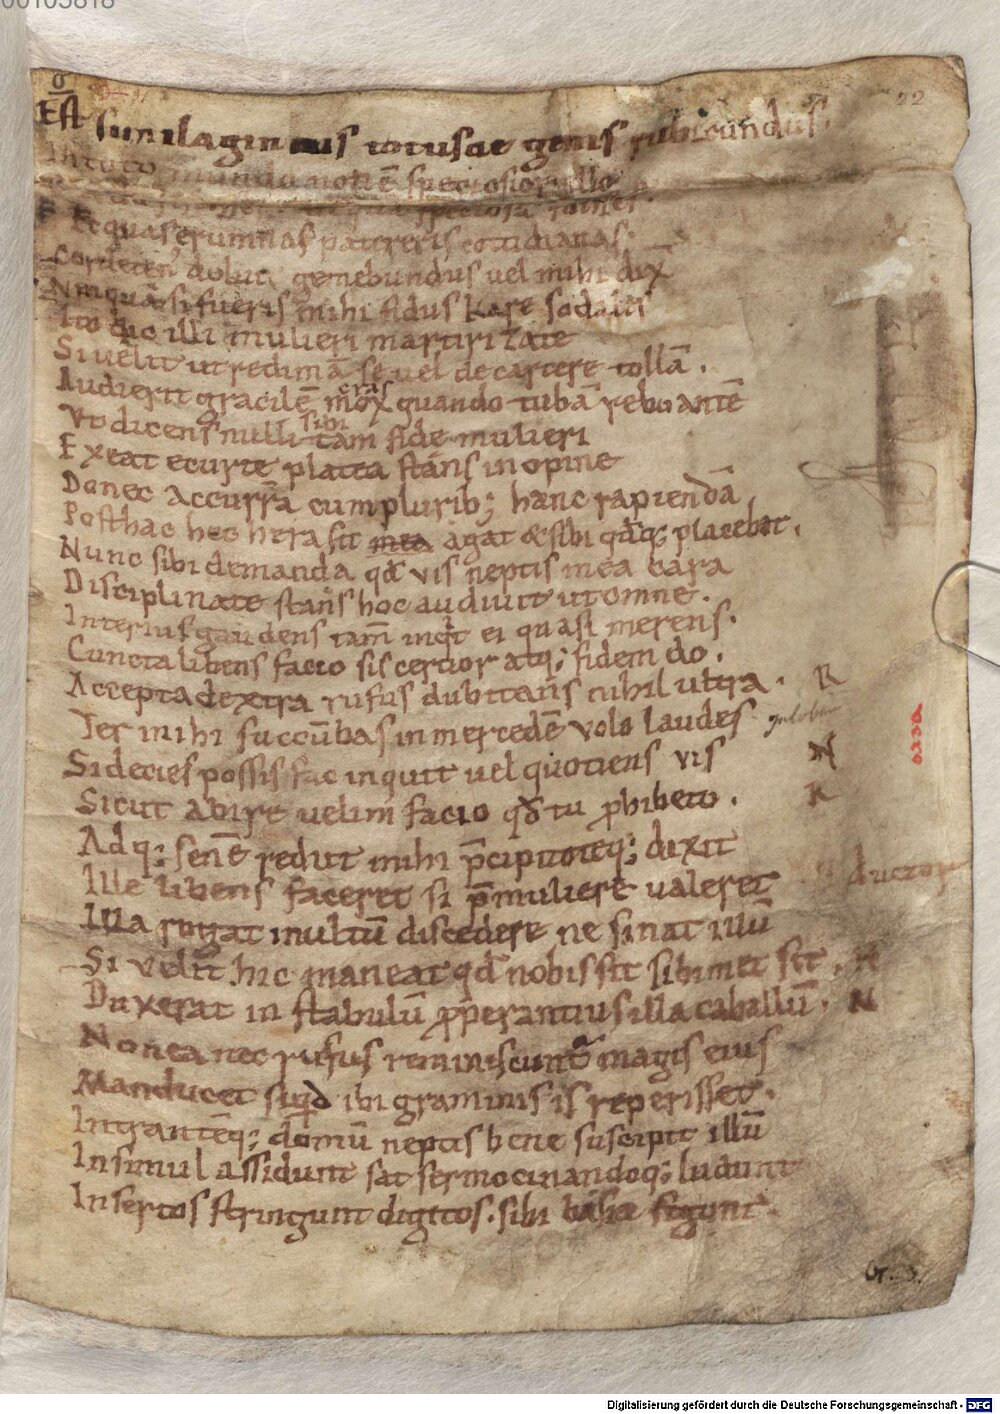 00103818
22
Est simila gin eus totus ac genis rubicundus.
In toto mundo non ē speciosior ullo
Et quas erumnas patereris cottidianas.
corde ten' dolui gemebundus vel mihi dix̄
Nūquā si fueris mihi fidus kare sodalis
Ito dic illi mulieri martirizate
Si velit ut redimā se vel de carcere tollā.
Audierit gracilē mox cras quando tubā reboantē
Vto dicens nulli sibi tam fide mulieri
Exeat e curte platea stans in opine
Donec accurrā cum plurib; hanc rapiendā
Posthac hec hera sit mea agat & sibi qd̄q; placebat.
Nunc sibi demanda qd̄ vis neptis mea cara
Disciplinate stans hoc audivit ut omne.
Interius gaudens tam̄ inqt ei quasi merens.
Cuncta libens facio sis certior atq; fidem do.
Accepta dextra rufus dubitans nihil ultra. R
Ter mihi succūbas in mercedē volo laudes
Si decies possis fac inquit vel quotiens vis N
Sicut abire velim facio qd̄ tu p̄hibeto. R
Adq; senē redut mihi p̄cipitoteq; dixit
ductor
Ille libens faceret si p̄ mulierē valeret
Illa rogat multū discedere ne sinat illū
Si velit hic maneat qd̄ nobis sit sibimet sit. R
Duxerat in stabulū p̄perantius illa caballū. N
Non ea nec rufus reminiscunt magis eius
Manducet siqd ibi graminis is reperisset.
Intrantēq; domū neptis bene suscipit illū
Insimul assidunt sat sermocinandoq; ludunt
Insertos stringunt digitos. sibi basia figunt.
Digitalisierung gefördert durch die Deutsche Forschungsgemeinschaft - DFG